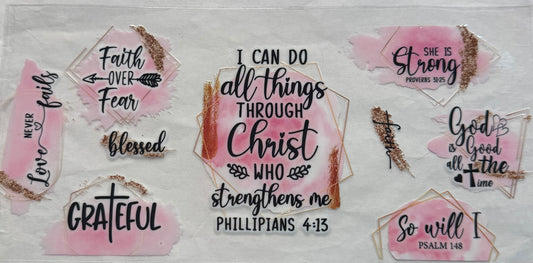 Love
NEVER
fails
Faith
OVER
Fear
blessed
GRATEFUL
I CAN DO
all things
THROUGH
Christ
WHO
strengthens me
PHILLIPIANS 4:13
SHE IS
Strong
PROVERBS 31:25
God
is Good
all the
time
So will I
PSALM 148